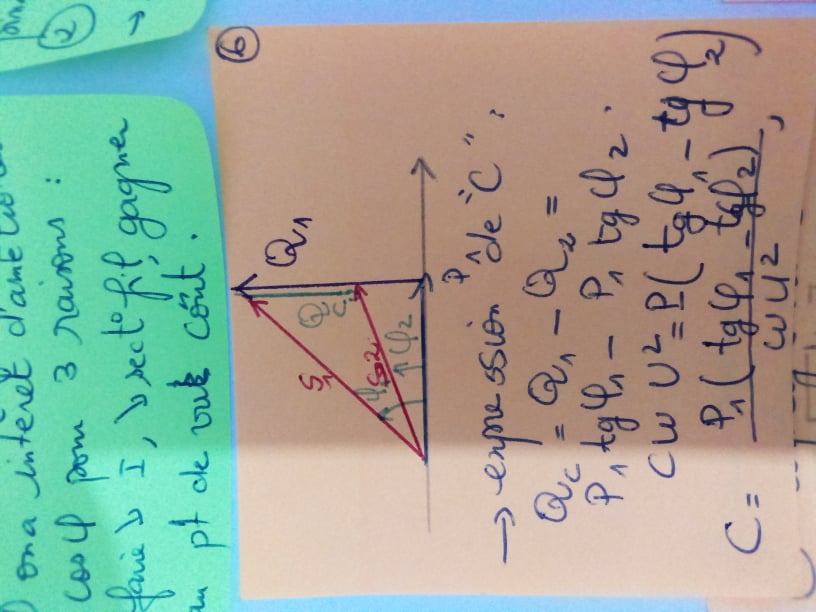 ②
→
on a intérêt d'améliorer
cos φ pour 3 raisons :
faire ↘ I, ↘ sect° fil, gagner
au pt de vue coût.
⑥
Q₁
Qc
S₁
S₂
φ₁
φ₂
P₁
→ expression de "C" :
Qc = Q₁ - Q₂ =
P₁ tgφ₁ - P₁ tgφ₂.
CωU² = P(tgφ₁ - tgφ₂)
C = P₁(tgφ₁ - tgφ₂) / ωU²